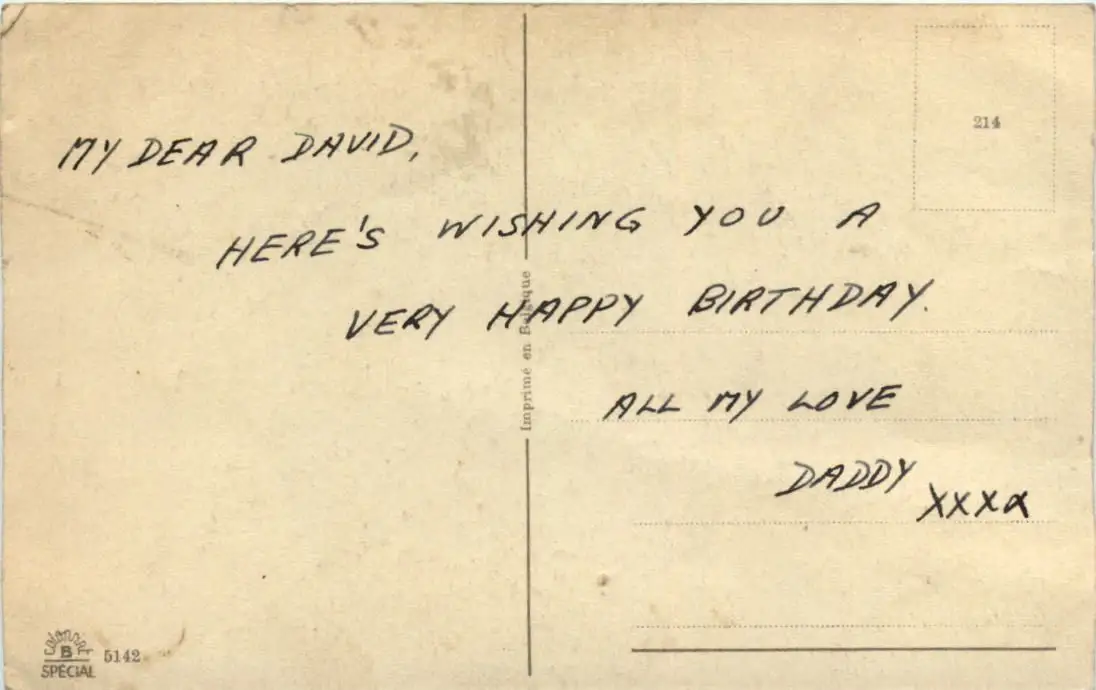 214
MY DEAR DAVID,
HERE'S WISHING YOU A
VERY HAPPY BIRTHDAY.
ALL MY LOVE
DADDY XXXX
Imprimé en Belgique
B
SPÉCIAL 5142